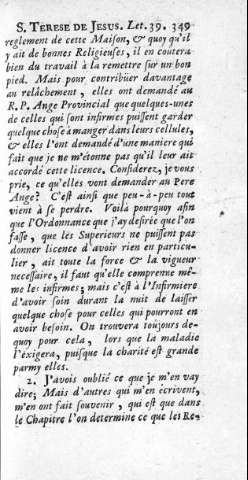 S. TERESE DE JESUS. Let. 39. 349
reglement de cette Maison, & quoy qu'il
y ait de bonnes Religieuses, il en coûtera-
bien du travail à la remettre sur un bon
pied. Mais pour contribuër davantage
au relâchement, elles ont demandé au
R. P. Ange Provincial que quelques-unes
de celles qui sont infirmes puissent garder
quelque chose à manger dans leurs cellules,
& elles l'ont demandé d'une maniere qui
fait que je ne m'étonne pas qu'il leur ait
accordé cette licence. Considerez, je vous
prie, ce qu'elles vont demander au Pere
Ange? C'est ainsi que peu-à-peu tout
vient à se perdre. Voilà pourquoy afin
que l'Ordonnance que j'ay desirée que l'on
fasse, que les Superieurs ne puissent pas
donner licence d'avoir rien en particu-
lier, ait toute la force & la vigueur
necessaire, il faut qu'elle comprenne mê-
me les infirmes; mais c'est à l'Infirmiere
d'avoir soin durant la nuit de laisser
quelque chose pour celles qui pourront en
avoir besoin. On trouvera toûjours de-
quoy pour cela, lors que la maladie
l'éxigera, puisque la charité est grande
parmy elles.
2. J'avois oublié ce que je m'en vay
dire; Mais d'autres qui m'en écrivent,
m'en ont fait souvenir, qui est que dans
le Chapitre l'on determine ce que les Re-